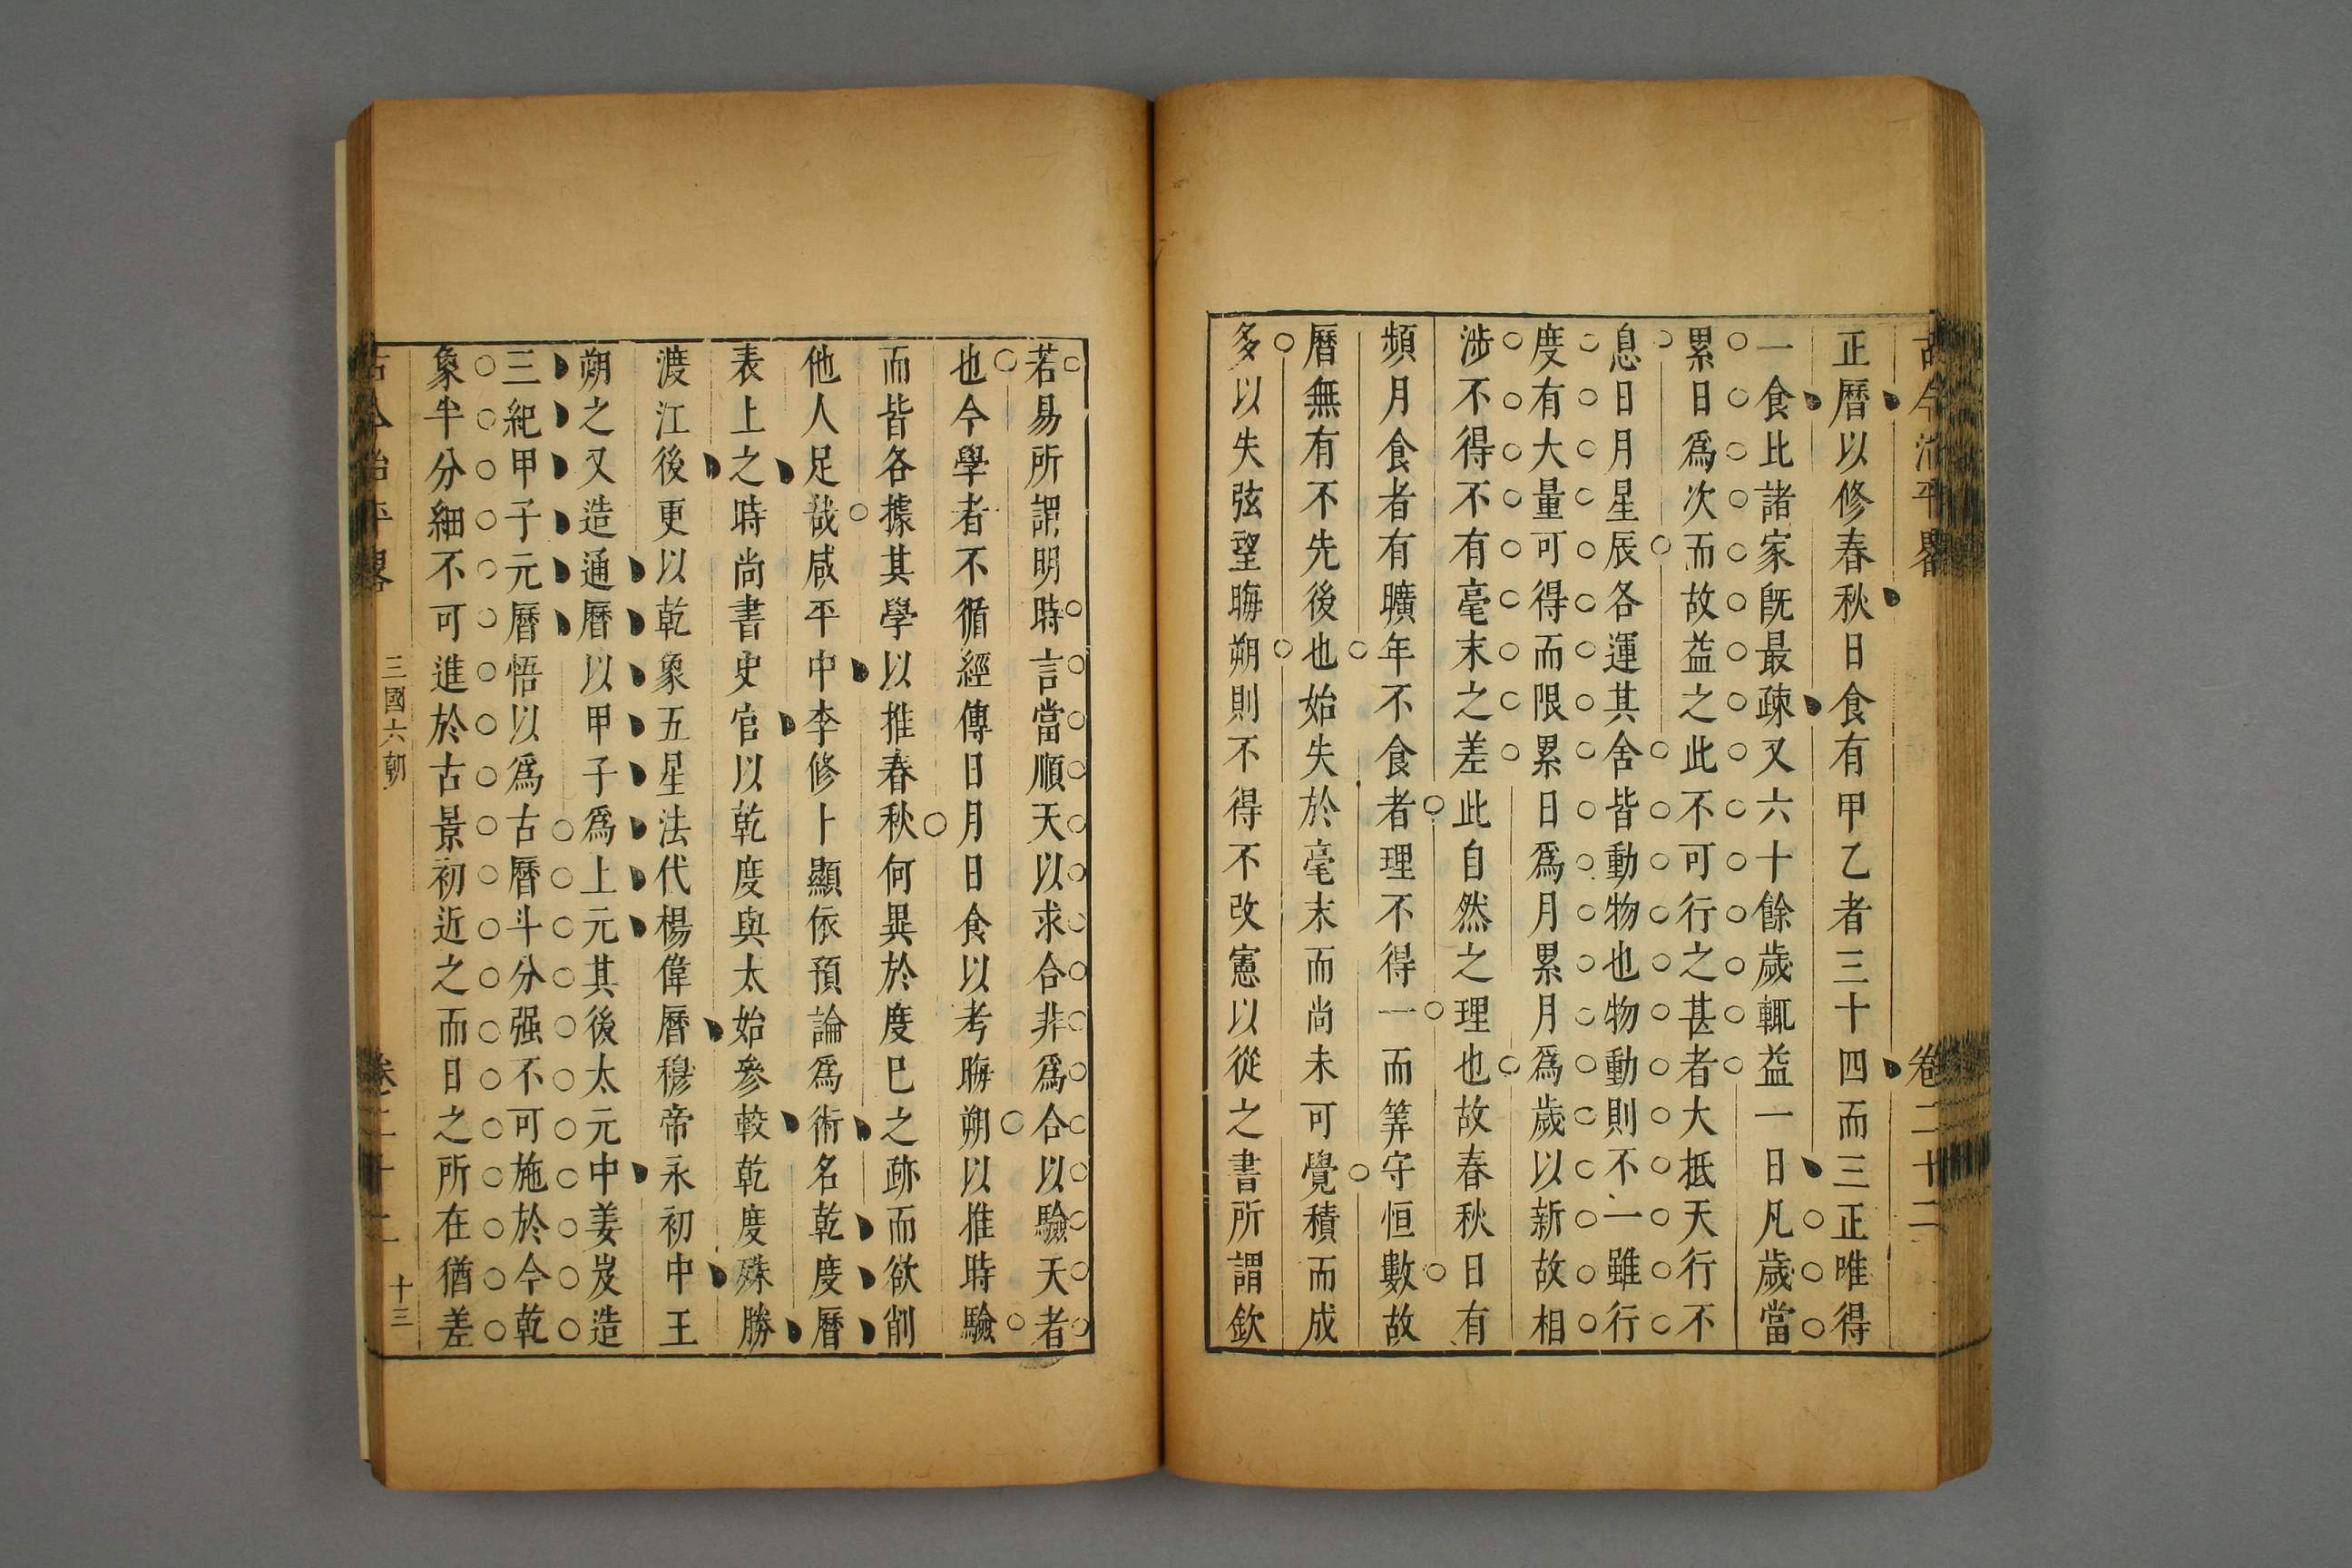 古今治平畧 卷二十二
正曆以修春秋日食有甲乙者三十四而三正唯得
一食比諸家既最疎又六十餘歲輒益一日凡歲當
累日爲次而故益之此不可行之甚者大抵天行不
息日月星辰各運其舍皆動物也物動則不一雖行
度有大量可得而限累日爲月累月爲歲以新故相
涉不得不有毫末之差此自然之理也故春秋日有
頻月食者有曠年不食者理不得一而筭守恒數故
曆無有不先後也始失於毫末而尚未可覺積而成
多以失弦望晦朔則不得不改憲以從之書所謂欽
若易所謂明時言當順天以求合非爲合以驗天者
也今學者不循經傳日月日食以考晦朔以推時驗
而皆各據其學以推春秋何異於度已之跡而欲削
他人足哉咸平中李修卜顯依預論爲術名乾度曆
表上之時尚書史官以乾度與太始參較乾度殊勝
渡江後更以乾象五星法代楊偉曆穆帝永初中王
朔之又造通曆以甲子爲上元其後太元中姜岌造
三紀甲子元曆悟以爲古曆斗分强不可施於今乾
象半分細不可進於古景初近之而日之所在猶差
古今治平畧 三國六朝 卷二十二 十三